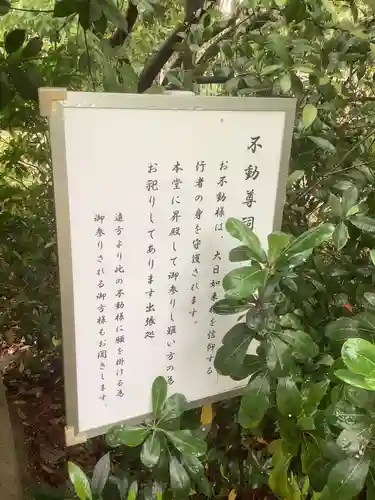 不動尊祠
お不動様は、大日如来を信仰する
行者の身を守護されます。
本堂に昇殿して御参りし難い方の為
お祀りしてあります出張処
遠方より此の不動様に願を掛ける為
御参りされる御方様もお聞きします。